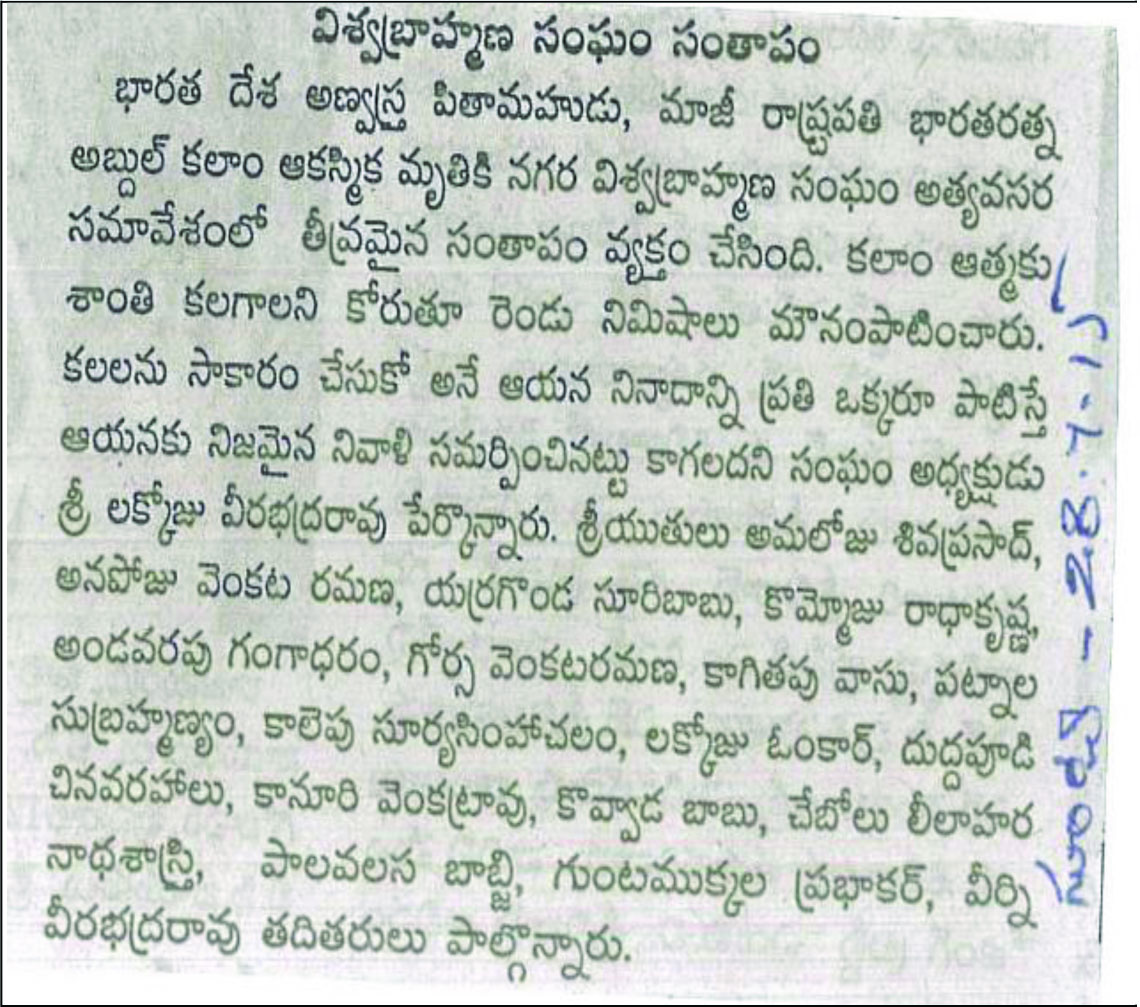 విశ్వబ్రాహ్మణ సంఘం సంతాపం
భారత దేశ అణ్వస్త్ర పితామహుడు, మాజీ రాష్ట్రపతి భారతరత్న
అబ్దుల్ కలాం ఆకస్మిక మృతికి నగర విశ్వబ్రాహ్మణ సంఘం అత్యవసర
సమావేశంలో తీవ్రమైన సంతాపం వ్యక్తం చేసింది. కలాం ఆత్మకు
శాంతి కలగాలని కోరుతూ రెండు నిమిషాలు మౌనంపాటించారు.
కలలను సాకారం చేసుకో అనే ఆయన నినాదాన్ని ప్రతి ఒక్కరూ పాటిస్తే
ఆయనకు నిజమైన నివాళి సమర్పించినట్టు కాగలదని సంఘం అధ్యక్షుడు
శ్రీ లక్కోజు వీరభద్రరావు పేర్కొన్నారు. శ్రీయుతులు అమలోజు శివప్రసాద్,
అనపోజు వెంకట రమణ, యర్రగొండ సూరిబాబు, కొమ్మోజు రాధాకృష్ణ,
అండవరపు గంగాధరం, గోర్స వెంకటరమణ, కాగితపు వాసు, పట్నాల
సుబ్రహ్మణ్యం, కాలెపు సూర్యసింహాచలం, లక్కోజు ఓంకార్, దుద్దపూడి
చినవరహాలు, కానూరి వెంకట్రావు, కొవ్వాడ బాబు, చేబోలు లీలాహర
నాథశాస్త్రి, పాలవలస బాబ్జి, గుంటముక్కల ప్రభాకర్, వీర్ని
వీరభద్రరావు తదితరులు పాల్గొన్నారు.
- 28.7.15